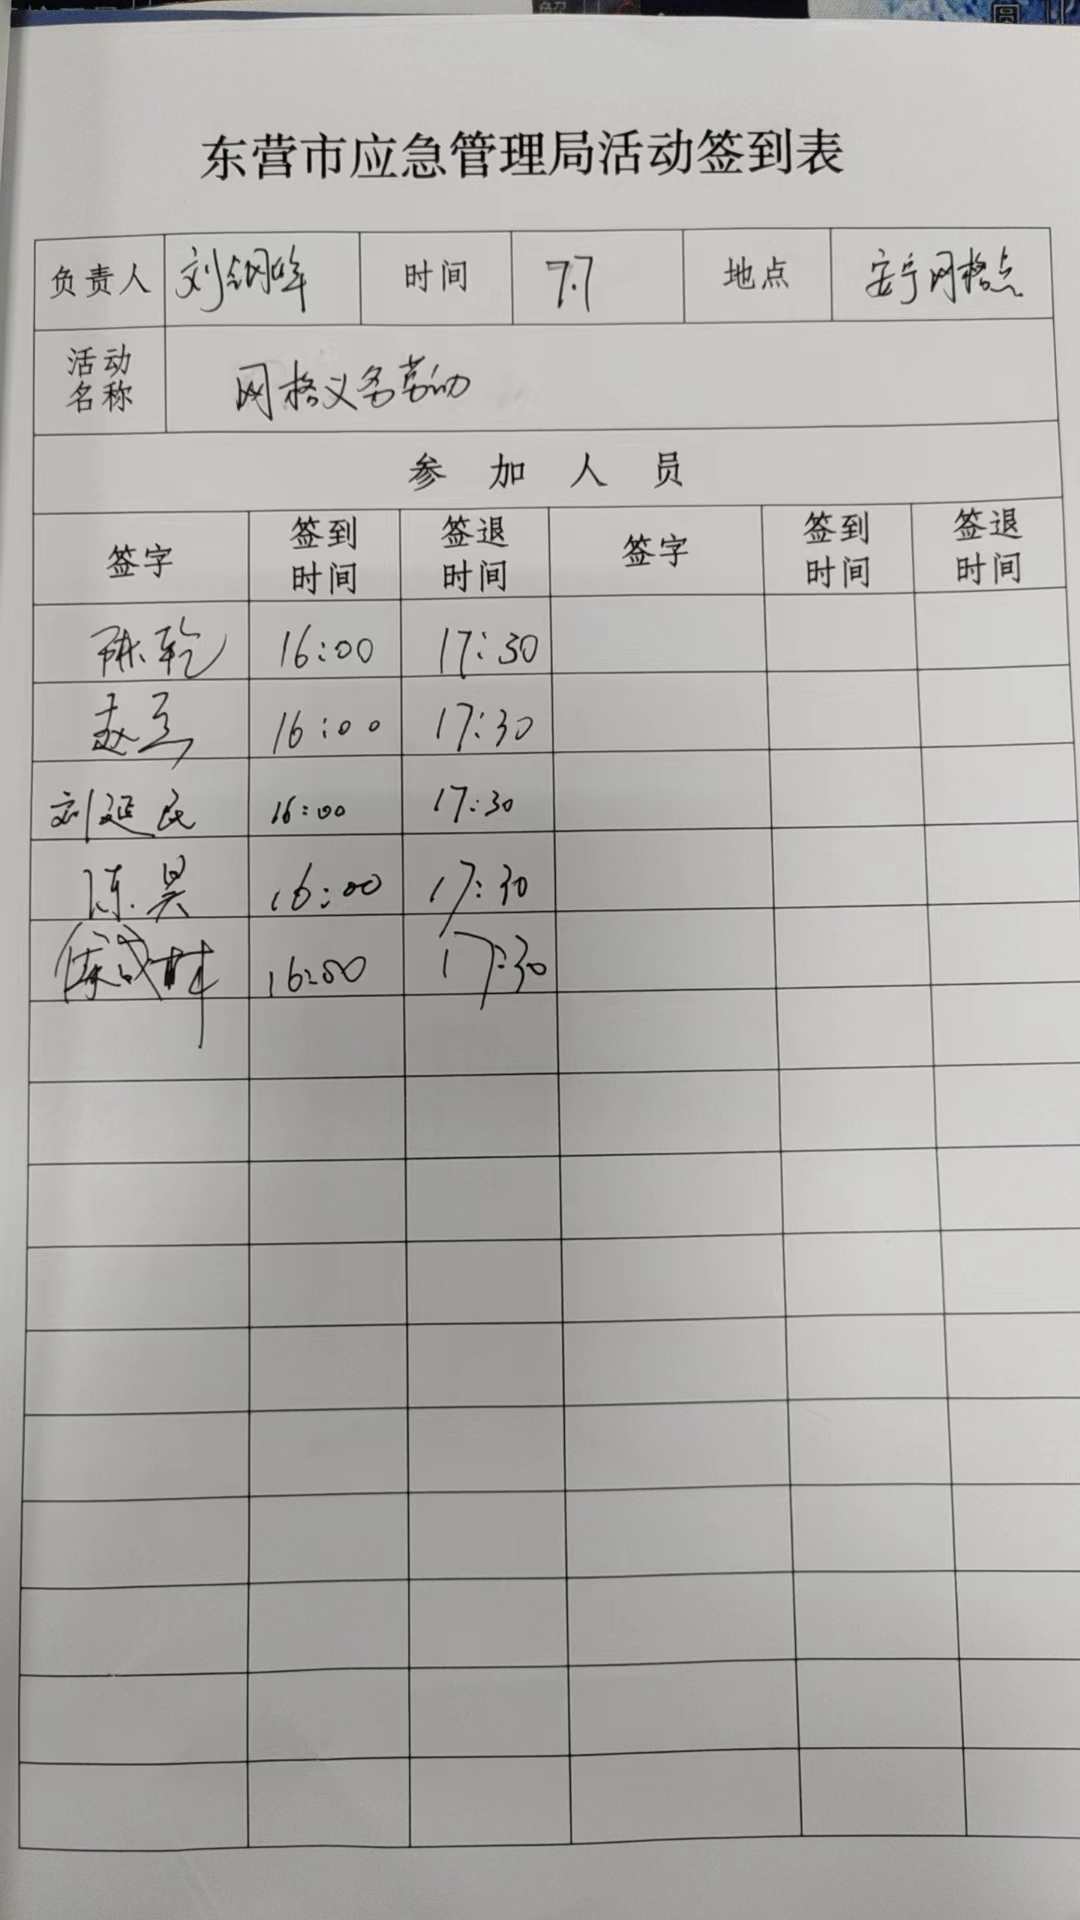 东营市应急管理局活动签到表
负责人 刘 时间 7.7 地点 安宁网格点
活动名称 网格义务劳动
参加人员
签字 签到时间 签退时间 签字 签到时间 签退时间
陈乾 16:00 17:30
赵亮 16:00 17:30
刘延民 16:00 17:30
陈昊 16:00 17:30
16:00 17:30